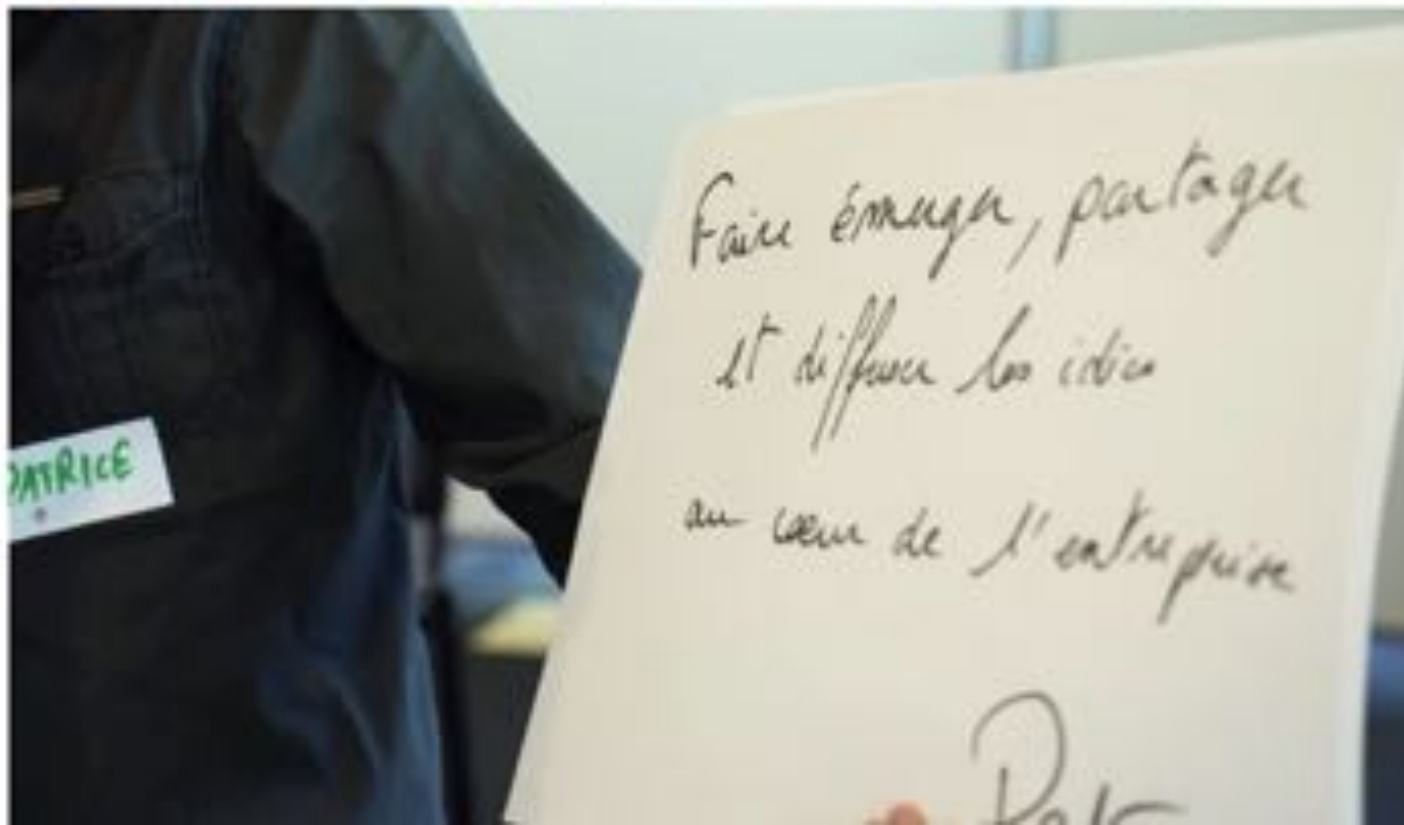 PATRICE
Faire émerger, partager
et diffuser les idées
au cœur de l'entreprise